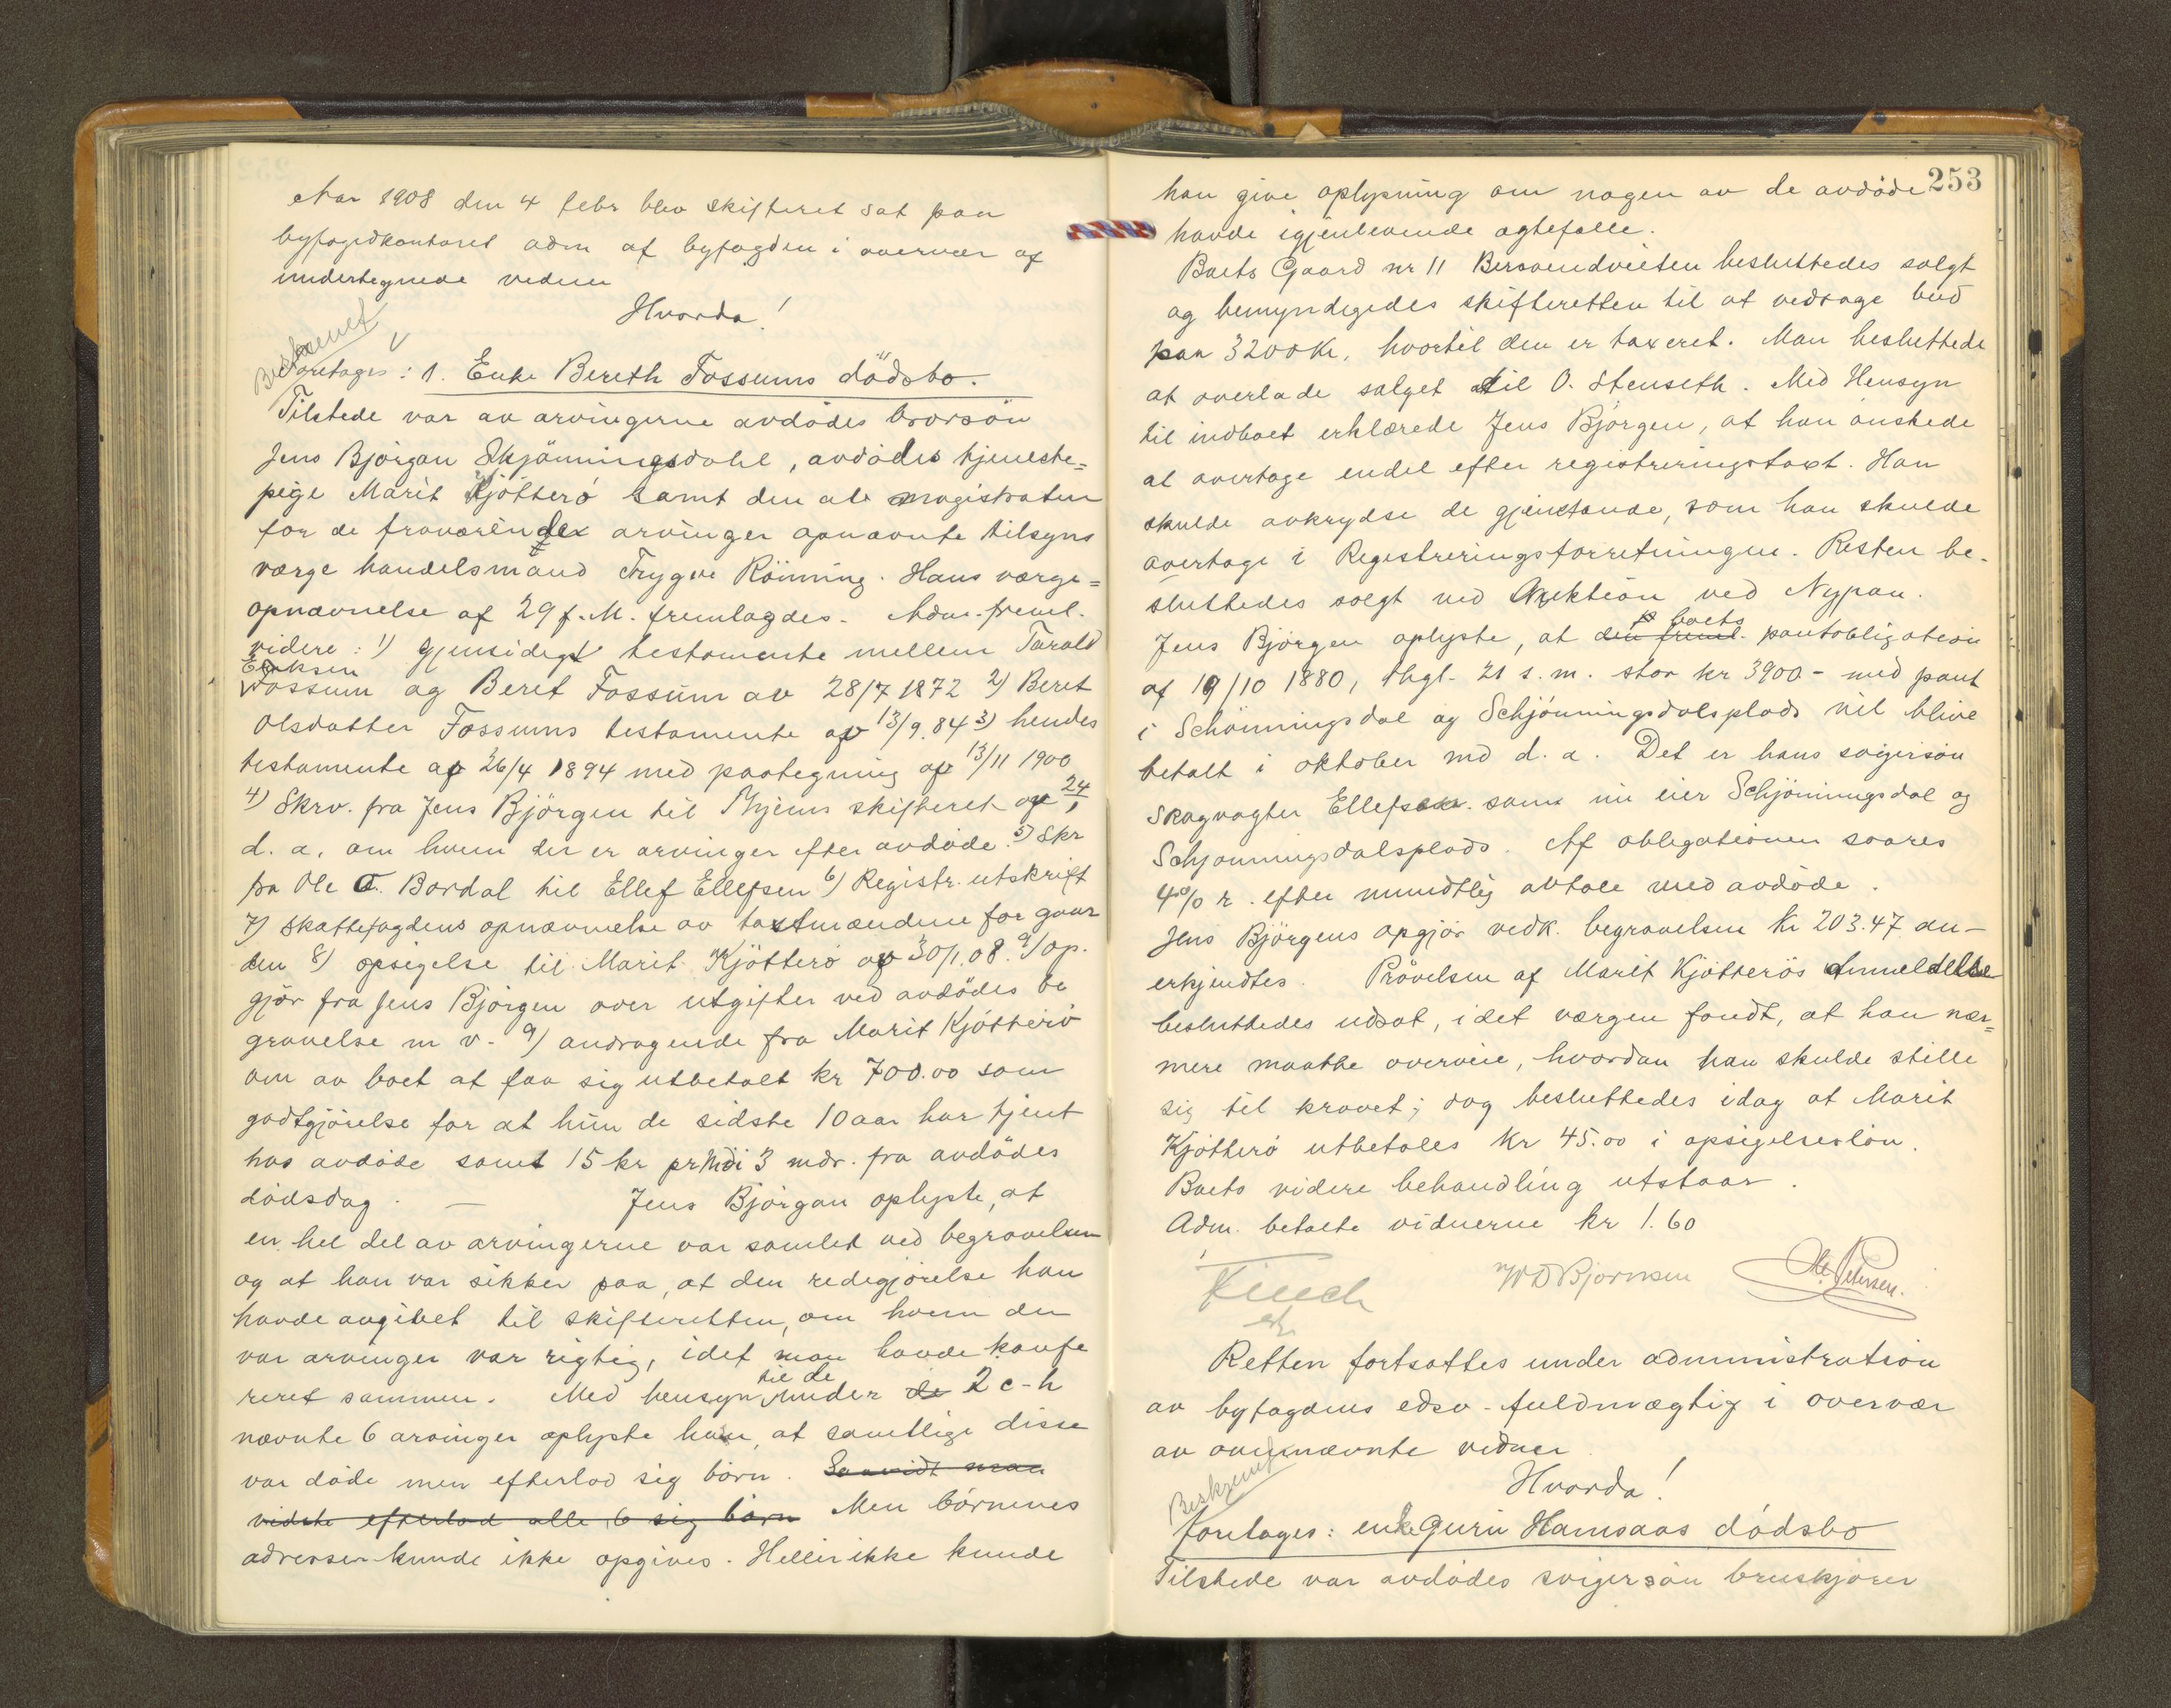 Aar 1908 den 4 febr blev skifteret sat paa
byfogedkontoret adm af byfogden i overvær af
undertegnede vidner
Hvorda!
Beskrevet
Foretages: 1. Enke Bereth Fossums dödsbo.
Tilstede var av arvingerne avdödes brorsön
Jens Björgan Skjönningsdahl, avdödes tjeneste=
pige Marit Kjötterö samt den af magistraten
for de fraværende arvinger opnævnte tilsyns
værge handelsmand Trygve Rönning. Hans værge=
opnævnelse af 29 f.M. fremlagdes. Adm. freml.
videre: 1) gjensidigt testamente mellem Tarald
Eriksen
Fossum og Beret Fossum av 28/7 1872 2) Beret
Olsdatter Fossums testamente av 13/9.84 3) hendes
testamente av 26/4 1894 med paategning av 13/11 1900
4) Skrv. fra Jens Björgen til skifteret av 24/1
d. a. om hvem der er arvinger efter avdöde. 5) Skr
fra Ole T. Bordal til Ellef Ellefsen 6) Registr. utskrift
7) Skattefogdens opnævnelse av taxtmændene for gaar
den 8) opsigelse til Marit Kjötterö av 30/1.08. 9) Op.
gjör fra Jens Björgen over utgifter ved avdödes be
gravelse m v. 9) andragende fra Marit Kjötterö
om av boet at faa sig utbetalt kr 700.00 som
godtgjörelse for at hun de sidste 10 aar har tjent
hos avdöde samt 15 kr pr Md i 3 mdr. fra avdödes
dödsdag. — Jens Björgan oplyste, at
en hel del av arvingerne var samlet ved begravelsen
og at han var sikker paa, at den redegjörelse han
havde avgivet til skifteretten, om hvem der
var arvinger var rigtig, idet man havde konfe
reret sammen. Med hensyn til de under de 2 c-h
nævnte 6 arvinger oplyste han, at samtlige disse
var döde men efterlod sig börn. Saavidt man
vidste efterlod alle 6 sig börn Men börnenes
adresser kunde ikke opgives. Heller ikke kunde
253
han give oplysning om nogen av de avdöde
havde igjenlevende ægtefælle.
Boets Gaard nr 11 Bersvendveiten besluttedes solgt
og bemyndigedes skifteretten til at vedtage bud
paa 3200 Kr, hvortil den er taxeret. Man besluttede
at overlade salget til O. Stenseth. Med Hensyn
til indboet erklærede Jens Björgen, at han önskede
at overtage endel efter registreringstaxt. Han
skulde avkrydse de gjenstande, som han skulde
overtage i Registreringsforretningen. Resten be-
sluttedes solgt ved Auktion ved Nypan.
boets
Jens Björgen oplyste, at den freml. pantobligation
af 19/10 1880, thgl. 21 s. m. stor kr 3900 - med pant
i Schönningsdal og Schjönningsdalsplads vil blive
betalt i oktober md d. a. Det er hans svigersön
Skogvogter Ellefsen som nu eier Schjönningsdal og
Schjönningsdalsplads. Af obligationen svares
4% r. efter mundtlig avtale med avdöde.
Jens Björgens opgjör vedk. begravelsen kr 203.47 an-
erkjendtes. Prövelsen af Marit Kjötterös Anmeldelse
besluttedes udsat, idet værgen fandt, at han nær=
mere maatte overveie, hvordan han skulde stille
sig til kravet; dog besluttedes idag at Marit
Kjötterö utbetales Kr 45.00 i opsigelseslön.
Boets videre behandling utstaar.
Adm. betalte vidnerne kr 1.60
Finch
W D Bjornsen
Petersen.
Retten fortsattes under administration
av byfogdens edsv. fuldmægtig i overvær
av ovennævnte vidner
Hvorda!
Beskrevet
foretages: enke Guru Hamsaas dödsbo
Tilstede var avdödes svigersön bruskjörer